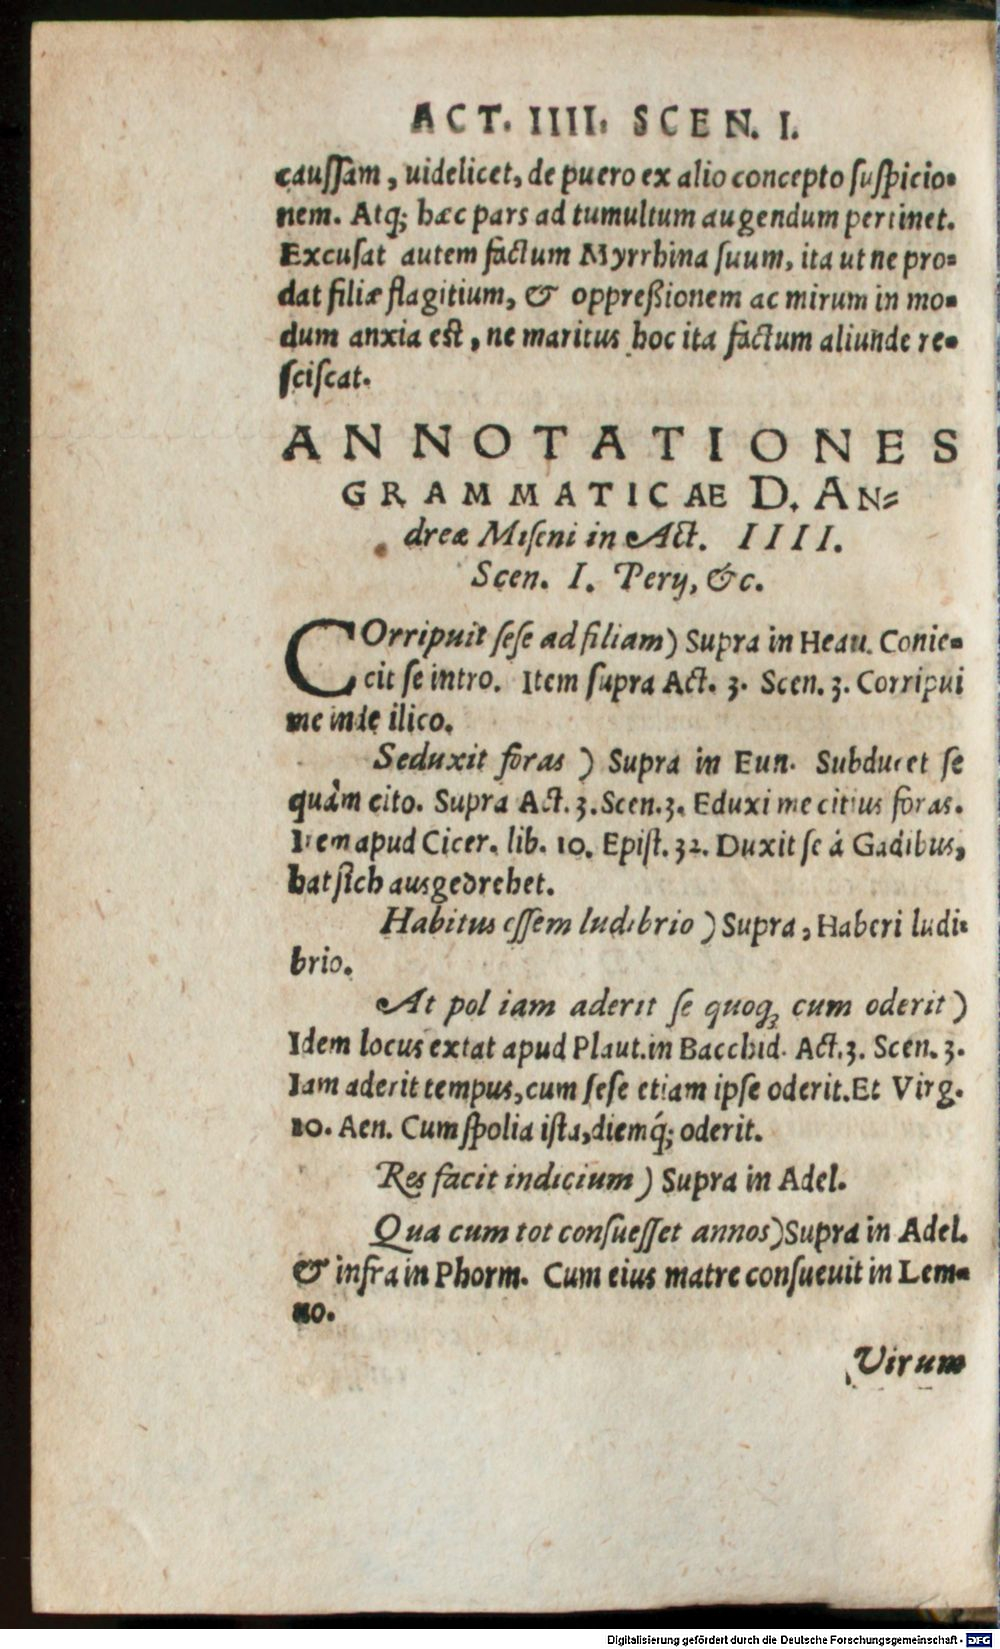 ACT. IIII. SCEN. I.
cauſſam, uidelicet, de puero ex alio concepto ſuſpicio-
nem. Atq; hæc pars ad tumultum augendum pertinet.
Excuſat autem factum Myrrhina ſuum, ita ut ne pro-
dat filiæ flagitium, & oppreßionem ac mirum in mo-
dum anxia eſt, ne maritus hoc ita factum aliunde re-
ſciſcat.
ANNOTATIONES
GRAMMATICAE D. AN-
dreæ Miſeni in Act. IIII.
Scen. I. Perij, &c.
COrripuit ſeſe ad filiam) Supra in Heau. Conie-
cit ſe intro. Item ſupra Act. 3. Scen. 3. Corripui
me inde ilico.
Seduxit foras) Supra in Eun. Subducet ſe
quàm cito. Supra Act. 3. Scen. 3. Eduxi me citius foras.
Item apud Cicer. lib. 10. Epiſt. 32. Duxit ſe á Gadibus,
hat ſich ausgedrehet.
Habitus eſſem ludibrio) Supra, Haberi ludi-
brio.
At pol iam aderit ſe quoq; cum oderit)
Idem locus extat apud Plaut. in Bacchid. Act. 3. Scen. 3.
Iam aderit tempus, cum ſeſe etiam ipſe oderit. Et Virg.
10. Aen. Cum ſpolia iſta, diemq́; oderit.
Res facit indicium) Supra in Adel.
Qua cum tot conſueſſet annos) Supra in Adel.
& infra in Phorm. Cum eius matre conſueuit in Lem-
no.
Virum
Digitalisierung gefördert durch die Deutsche Forschungsgemeinschaft - DFG